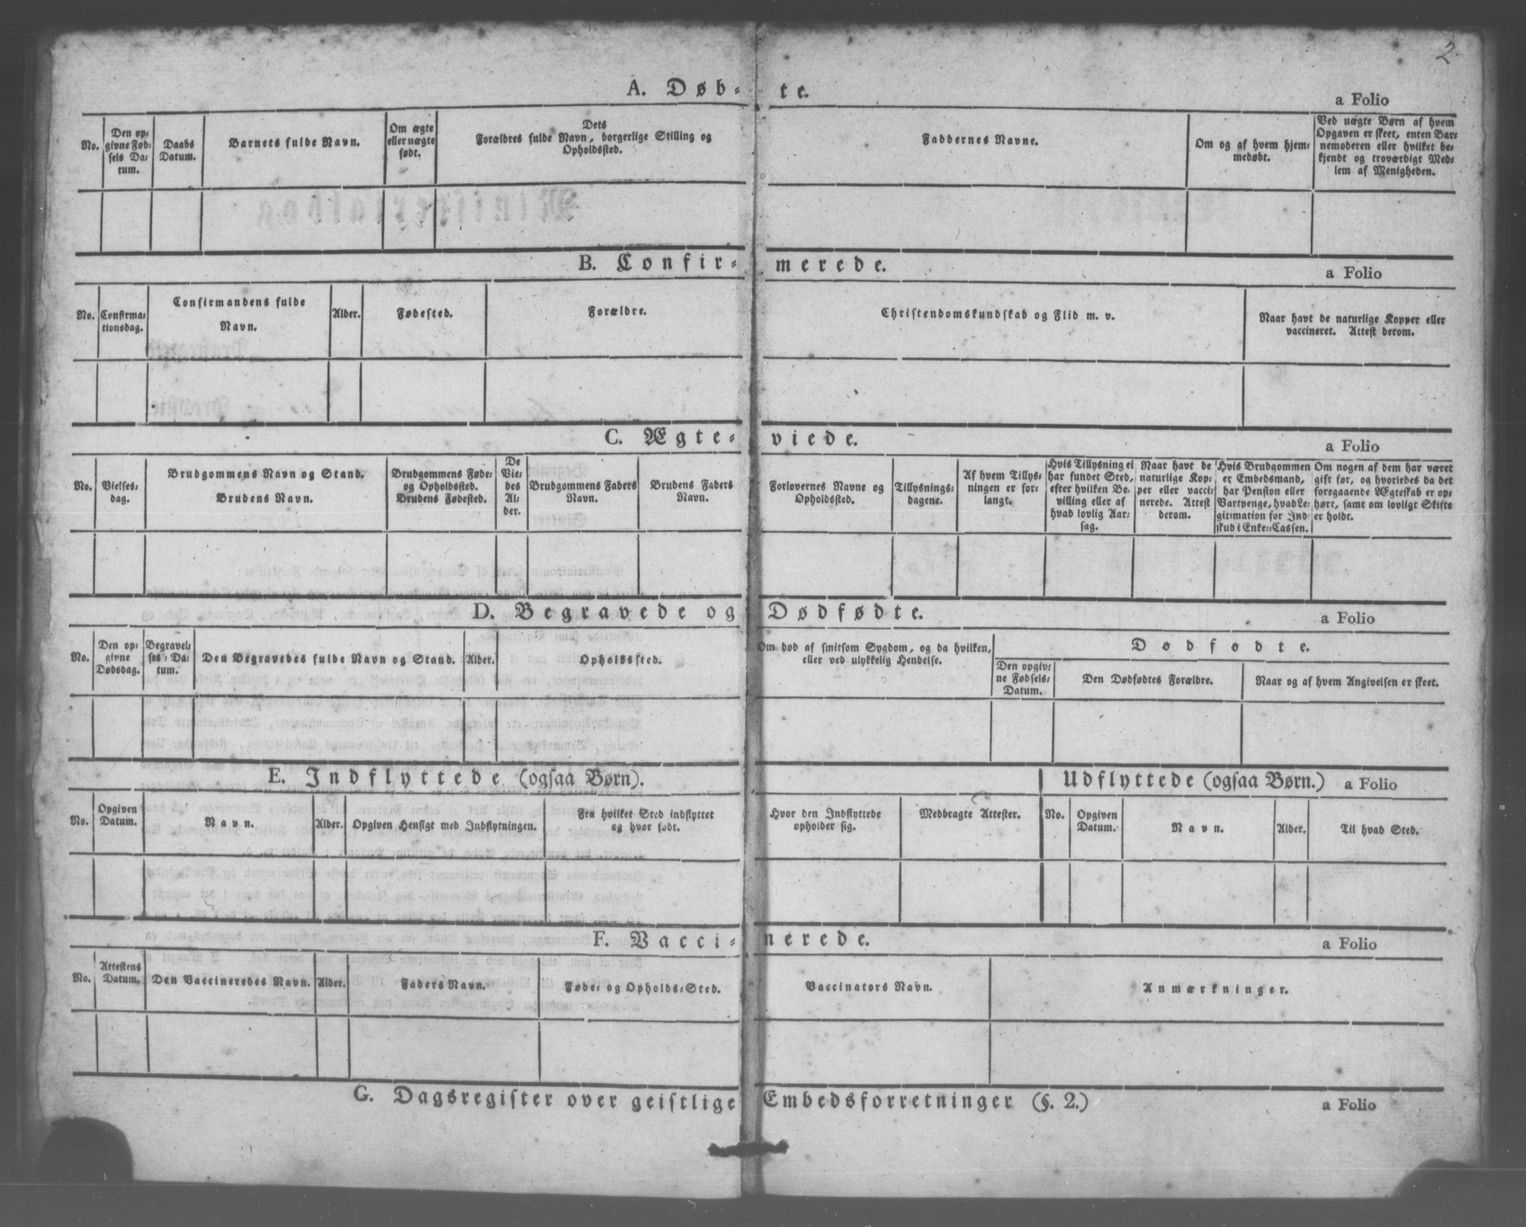 2
A. Døb- te.
a Folio
No.
Den op-
givne Fød-
sels Da-
tum.
Daabs
Datum.
Barnets fulde Navn.
Om ægte
eller uægte
født.
Dets
Forældres fulde Navn, borgerlige Stilling og
Opholdssted.
Faddernes Navne.
Om og af hvem hjem-
medøbt.
Ved uægte Børn af hvem
Opgaven er skeet, enten Bar-
nemoderen eller hvilket be-
kjendt og troværdigt Med-
lem af Menigheden.
B. Confir- merede.
a Folio
No.
Confirma-
tionsdag.
Confirmandens fulde
Navn.
Alder.
Fødested.
Forældre.
Christendomskundskab og Flid m. v.
Naar havt de naturlige Kopper eller
vaccineret. Attest derom.
C. Ægte- viede.
a Folio
No.
Vielses-
dag.
Brudgommens Navn og Stand.
Brudens Navn.
Brudgommens Føde-
og Opholdssted.
Brudens Fødested.
De
Vie-
des
Al-
der.
Brudgommens Faders
Navn.
Brudens Faders
Navn.
Forlovernes Navne og
Opholdssted.
Tillysnings-
dagene.
Af hvem Tillys-
ningen er for-
langt.
Hvis Tillysning ei
har fundet Sted,
efter hvilken Be-
villing eller af
hvad lovlig Aar-
sag.
Naar havt de
naturlige Kop-
per eller vacci-
nerede. Attest
derom.
Hvis Brudgommen
er Embedsmand,
har Pension eller
Vartpenge, hvad Le-
gitimation for Ind-
skud i Enke-Cassen.
Om nogen af dem har været
gift før, og hvorledes da det
foregaaende Ægteskab er op-
hørt, samt om lovligt Skifte
er holdt.
D. Begravede og Dødfødte.
a Folio
No.
Den op-
givne
Dødsdag.
Begravel-
ses-Da-
tum.
Den Begravedes fulde Navn og Stand.
Alder.
Opholdssted.
Om død af smitsom Sygdom, og da hvilken,
eller ved ulykkelig Hendelse.
Dødfødte.
Den opgiv-
ne Fødsels-
Datum.
Den Dødfødtes Forældre.
Naar og af hvem Angivelsen er skeet.
E. Indflyttede (ogsaa Børn).
Udflyttede (ogsaa Børn.)
a Folio
No.
Opgiven
Datum.
Navn.
Alder.
Opgiven Hensigt med Indflytningen.
Fra hvilket Sted indflyttet
og hvor født.
Hvor den Indflyttede
opholder sig.
Medbragte Attester.
No.
Opgiven
Datum.
Navn.
Alder.
Til hvad Sted.
F. Vacci- nerede.
a Folio
No.
Attestens
Datum.
Den Vaccineredes Navn.
Alder.
Faders Navn.
Føde- og Opholds-Sted.
Vaccinators Navn.
Anmærkninger.
G. Dagsregister over geistlige Embedsforretninger (§. 2.)
a Folio